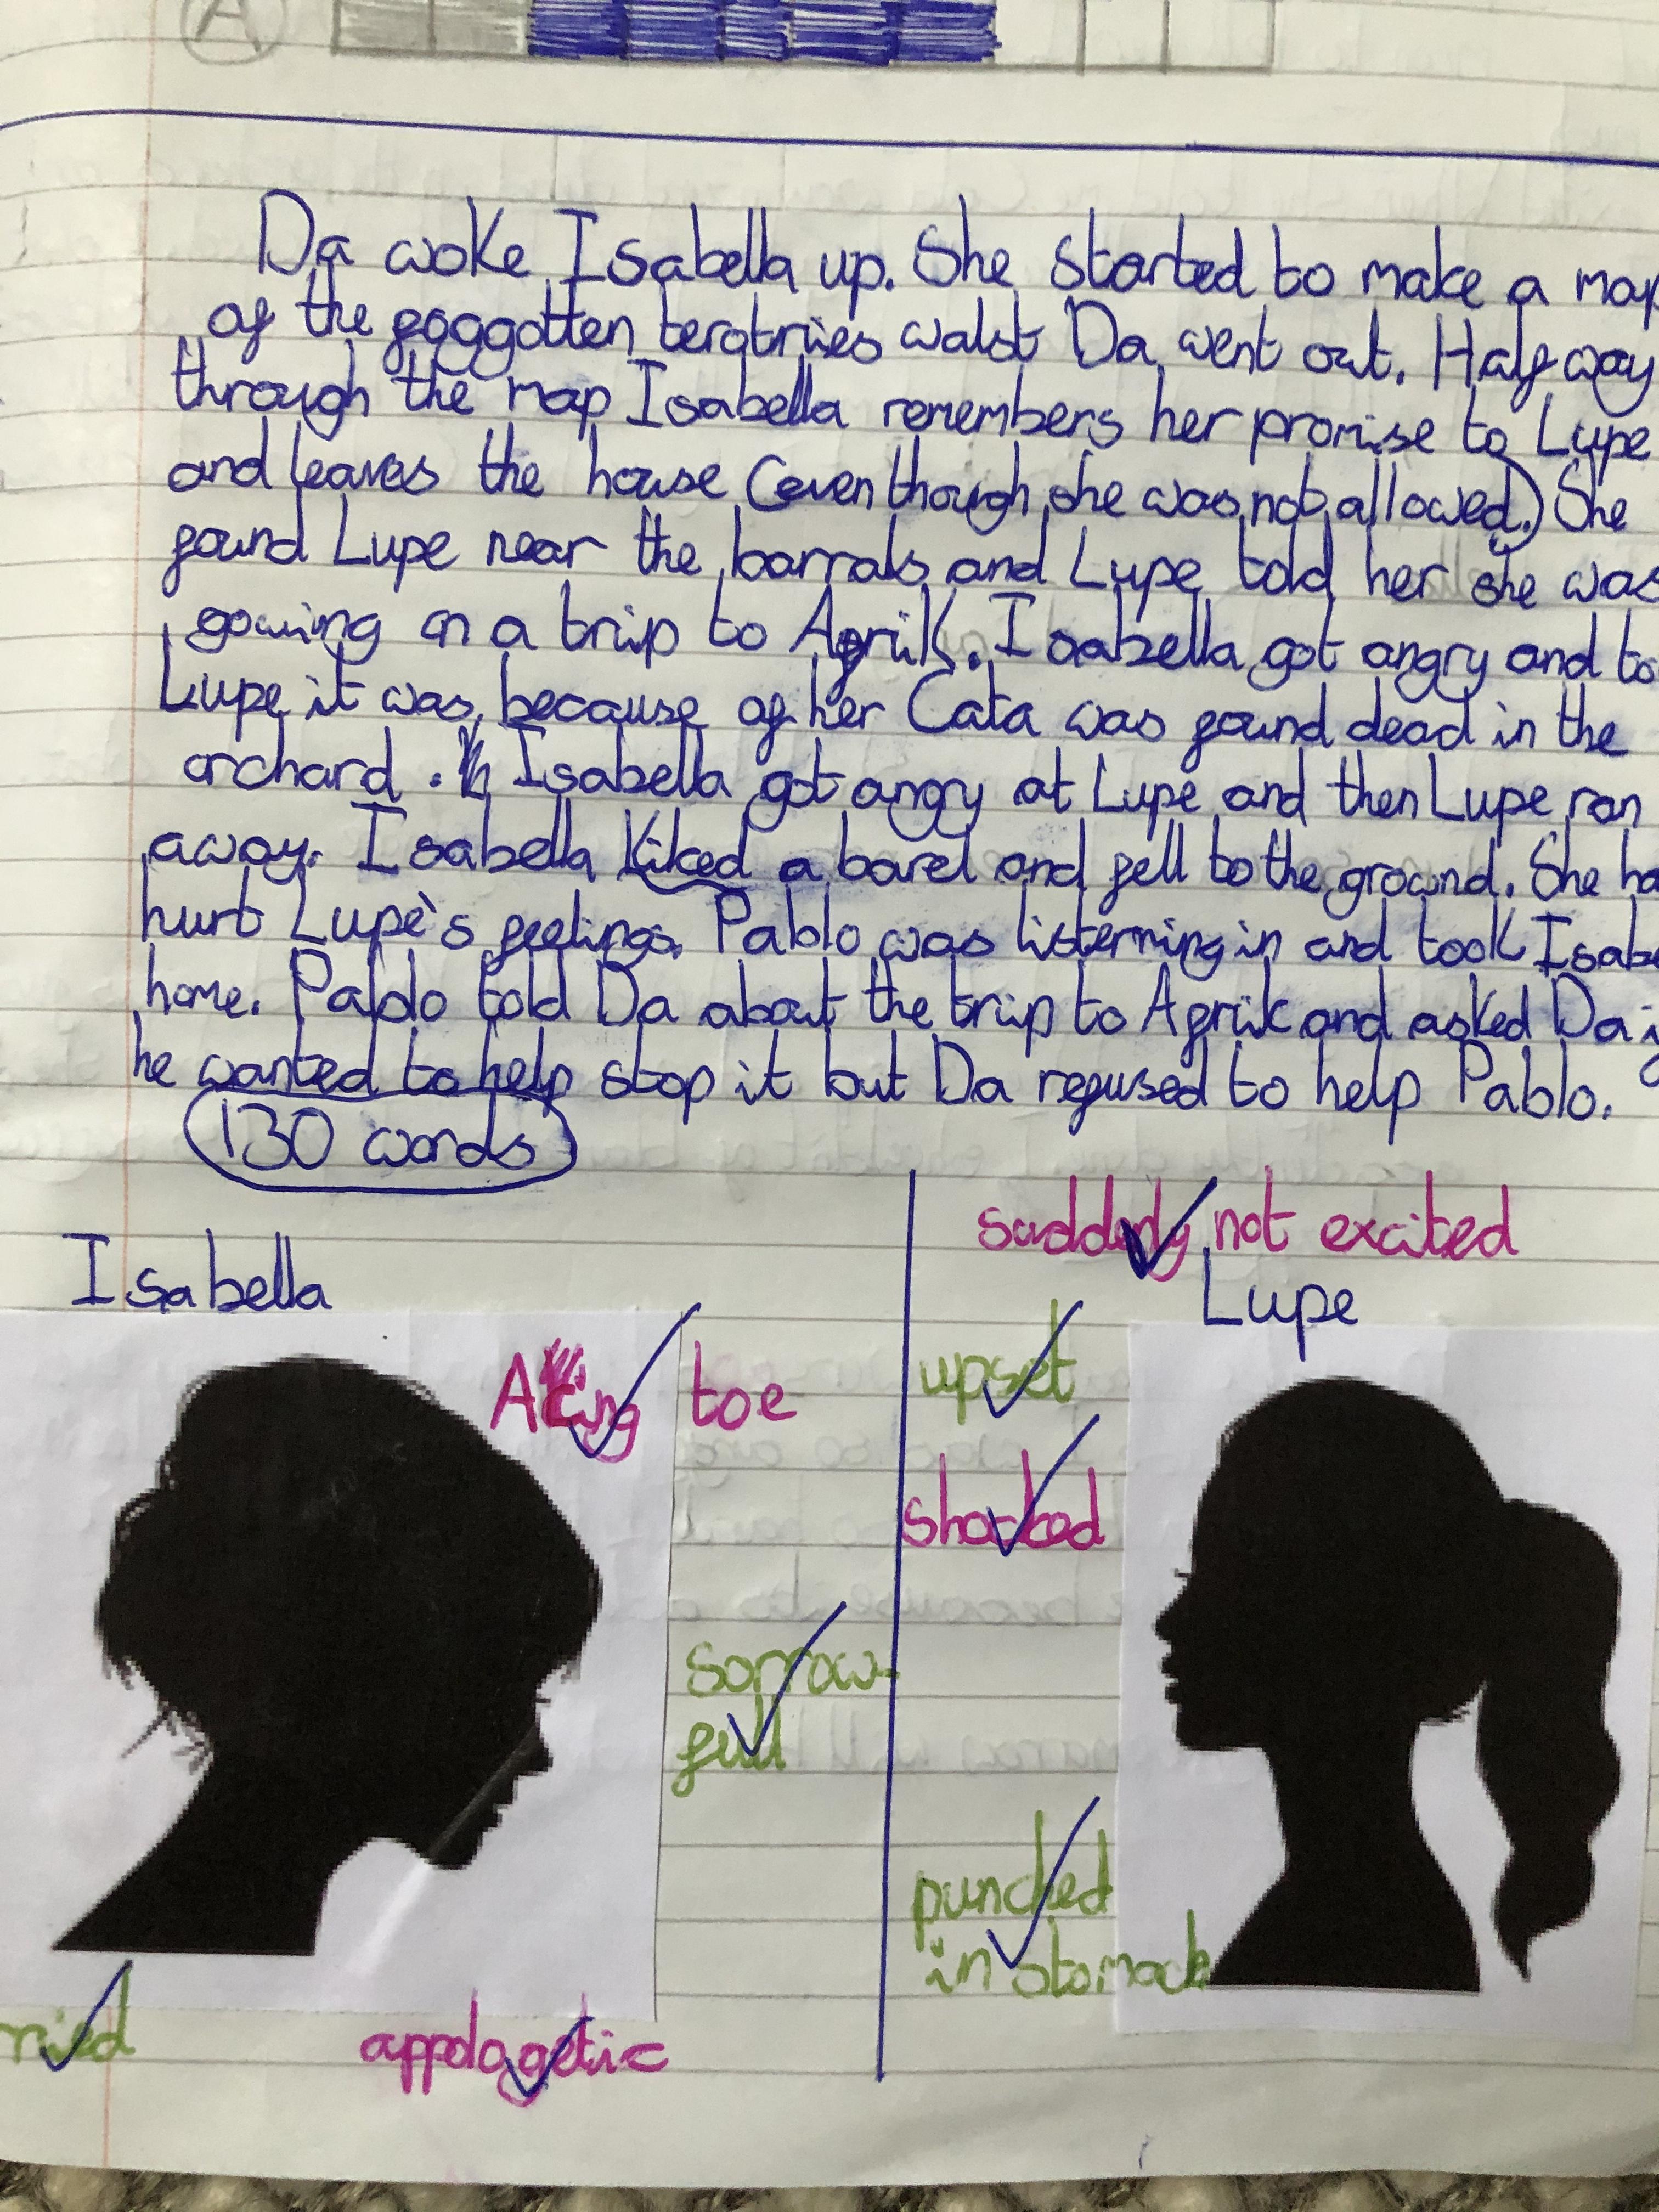 A
Da woke Isabella up. She started to make a map
of the goggotten terotries walst Da went out. Half way
through the map Isabella remembers her promise to Lupe
and leaves the house (even though she was not allowed.) She
found Lupe near the barrals and Lupe told her she was
gowing on a trip to Afrik. Isabella got angry and to
Lupe it was because of her Cata was found dead in the
orchard. Isabella got angry at Lupe and then Lupe ran
away. Isabella kiked a barel and fell to the ground. She ha
hurt Lupe's feelings. Pablo was listerning in and took Isabe
home. Pablo told Da about the trip to Afrik and asked Da i
he wanted to help stop it but Da refused to help Pablo.
130 words
Isabella
Aking toe
sorrow-
full
ried
appologetic
suddenly not excited
Lupe
upset
shocked
punched
in stomach